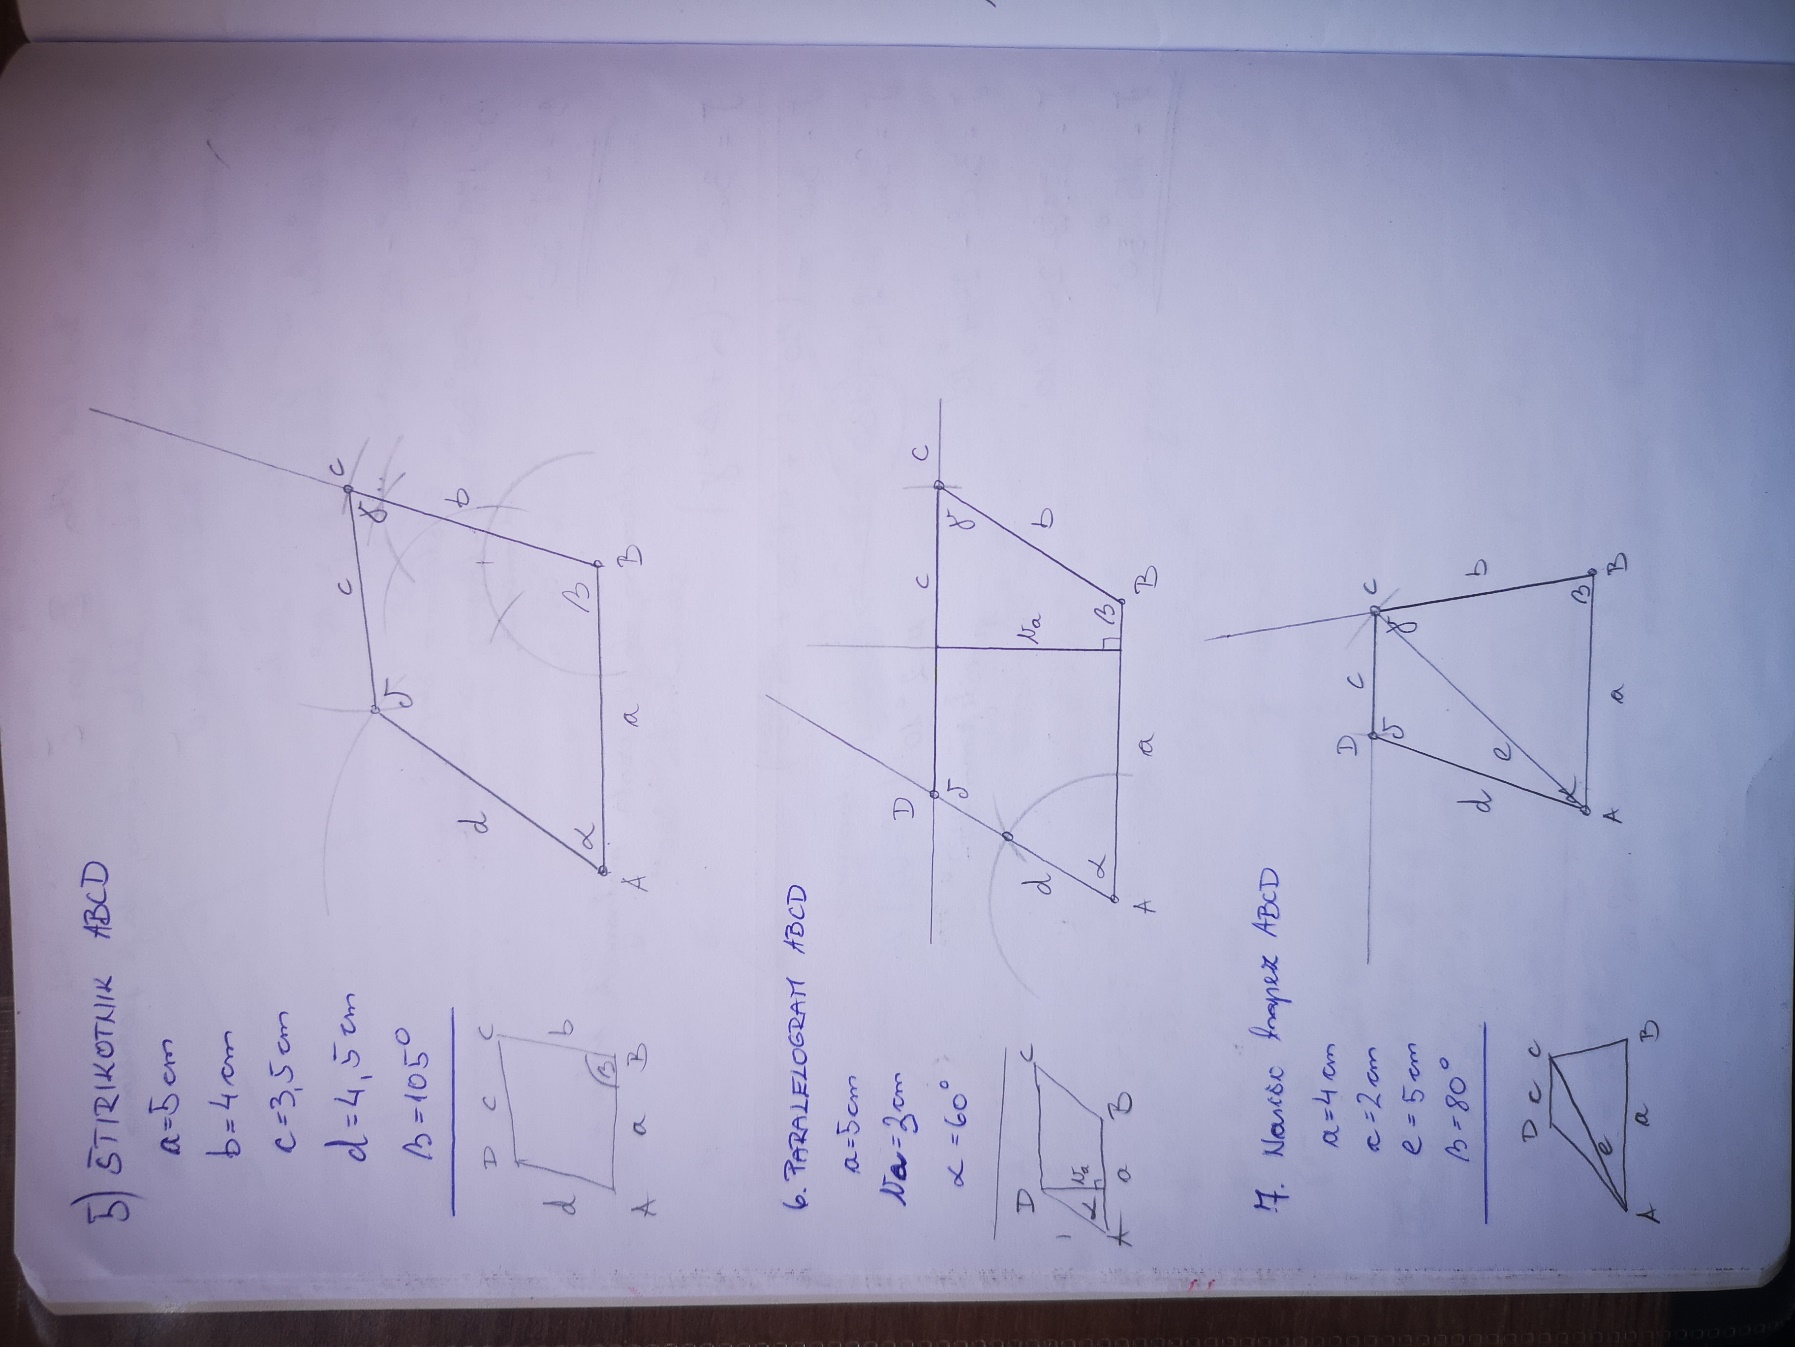 5) ŠTIRIKOTNIK ABCD
a=5cm
b=4cm
c=3,5cm
d=4,5cm
β=105°
D c C
d b
β
A a B
c C
δ γ
d b
α β
A a B
6. PARALELOGRAM ABCD
a=5cm
va=3cm
α=60°
D C
α va
A a B
D c C
δ γ
d va b
α β
A a B
7. Nariši trapez ABCD
a=4cm
c=2cm
e=5cm
β=80°
D c C
e
A a B
D c C
δ γ
d e b
α β
A a B